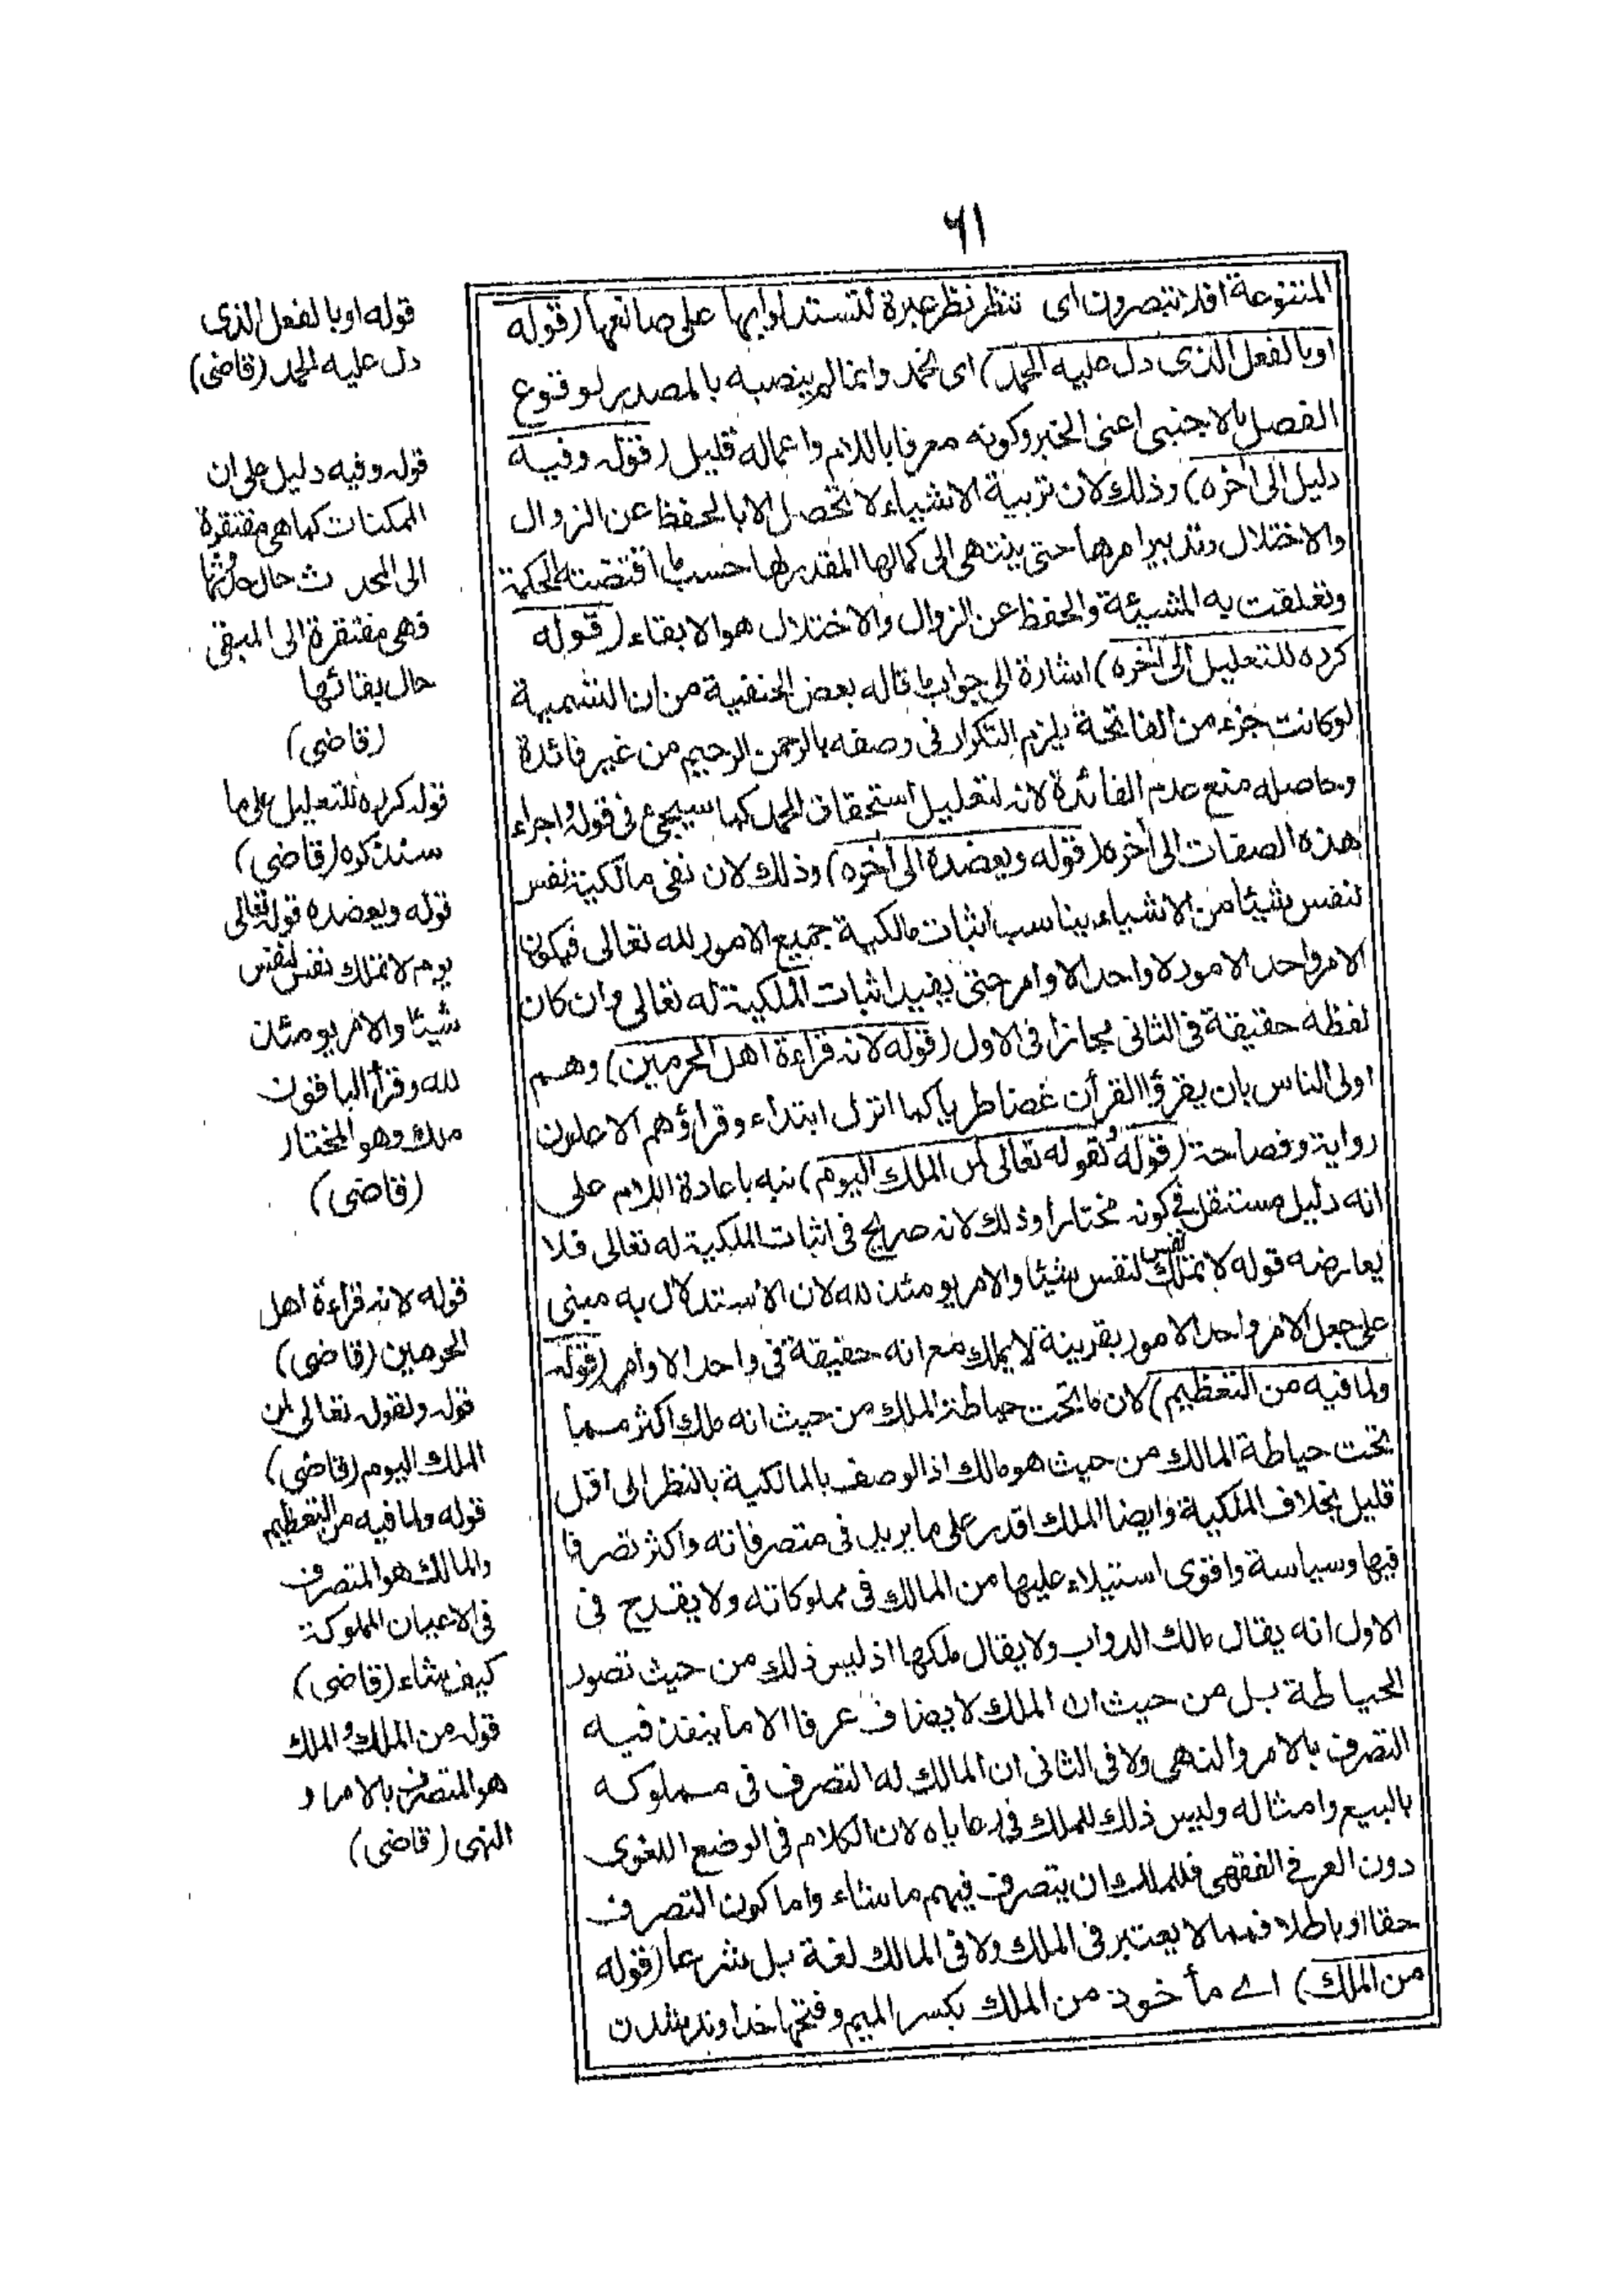 ٦١
المتنوعة افلا تبصرون اى تنظر نظر عبرة لتستدلوا بها على صانعها (قوله
اوبالفعل الذى دل عليه الحمد) اى نحمد وانما لم ينصبه بالمصدر لوقوع
الفصل بالاجنبى اعنى الخبر وكونه معرفا باللام واعماله قليل (قوله وفيه
دليل الى أخره) وذلك لان تربية الاشياء لا تحصل الا بالحفظ عن الزوال
والاختلال وتدبير امرها حتى ينتهى الى كمالها المقدر لها حسب ما اقتضته الحكمة
وتعلقت به المشيئة والحفظ عن الزوال والاختلال هو الابقاء (قوله
كرره للتعليل الى أخره) اشارة الى جواب ما قاله بعض الحنفية من ان التسمية
لوكانت جزء من الفاتحة يلزم التكرار فى وصفه بالرحمن الرحيم من غير فائدة
وحاصله منع عدم الفائدة لانه لتعليل استحقاق الحمد كما سيجئ فى قوله اجراء
هذه الصفات الى أخره (قوله ويعضده الى أخره) وذلك لان نفى مالكية نفس
لنفس شيئا من الاشياء يناسب اثبات مالكية جميع الامور لله تعالى فيكون
الامر واحد الامور لا واحد الاوامر حتى يفيد اثبات الملكية له تعالى وان كان
لفظه حقيقة فى الثانى مجازا فى الاول (قوله لانه قراءة اهل الحرمين) وهم
اولى الناس بان يقرؤا القرأن غضا طريا كما انزل ابتداء وقراؤهم الاعلون
رواية وفصاحة (قوله لقوله تعالى لمن الملك اليوم) نبه باعادة اللام على
انه دليل مستقل فى كونه مختارا وذلك لانه صريح فى اثبات الملكية له تعالى فلا
يعارضه قوله لا تملك نفس لنفس شيئا والامر يومئذ لله لان الاستدلال به مبنى
على جعل الامر واحد الامور بقرينة لا يملك مع انه حقيقة فى واحد الاوامر (قوله
ولما فيه من التعظيم) لان ما تحت حياطة الملك من حيث انه ملك اكثر مما
تحت حياطة المالك من حيث هو مالك اذ الوصف بالمالكية بالنظر الى اقل
قليل بخلاف الملكية وايضا الملك اقدر على ما يريد فى متصرفاته واكثر تصرفا
فيها وسياسة واقوى استيلاء عليها من المالك فى مملوكاته ولا يقدح فى
الاول انه يقال مالك الدواب ولا يقال ملكها اذ ليس ذلك من حيث تصور
الحياطة بل من حيث ان الملك لا يضاف عرفا الا ما ينفذ فيه
التصرف بالامر والنهى ولا فى الثانى ان المالك له التصرف فى مملوكه
بالبيع وامثاله وليس ذلك للملك فى رعاياه لان الكلام فى الوضع اللغوى
دون العرفى الفقهى فللملك ان يتصرف فيهم ماشاء واما كون التصرف
حقا او باطلا فمما لا يعتبر فى الملك ولا فى المالك لغة بل شرعا (قوله
من الملك) اے مأخوذ من الملك بكسر الميم وفتحها خداوند شدن
قوله اوبالفعل الذى
دل عليه الحمد (قاضى)
قوله وفيه دليل على ان
الممكنات كما هى مفتقرة
الى المحدث حال حدوثها
فهى مفتقرة الى المبقى
حال بقائها
(قاضى)
قوله كرره للتعليل على ما
سنذكره (قاضى)
قوله ويعضده قوله تعالى
يوم لا تملك نفس لنفس
شيئا والامر يومئذ
لله وقرأ الباقون
ملك وهو المختار
(قاضى)
قوله لانه قراءة اهل
الحرمين (قاضى)
قوله ولقوله تعالى لمن
الملك اليوم (قاضى)
قوله ولما فيه من التعظيم
والمالك هو المتصرف
فى الاعيان المملوكة
كيف يشاء (قاضى)
قوله من الملك والملك
هو المتصرف بالامر و
النهى (قاضى)